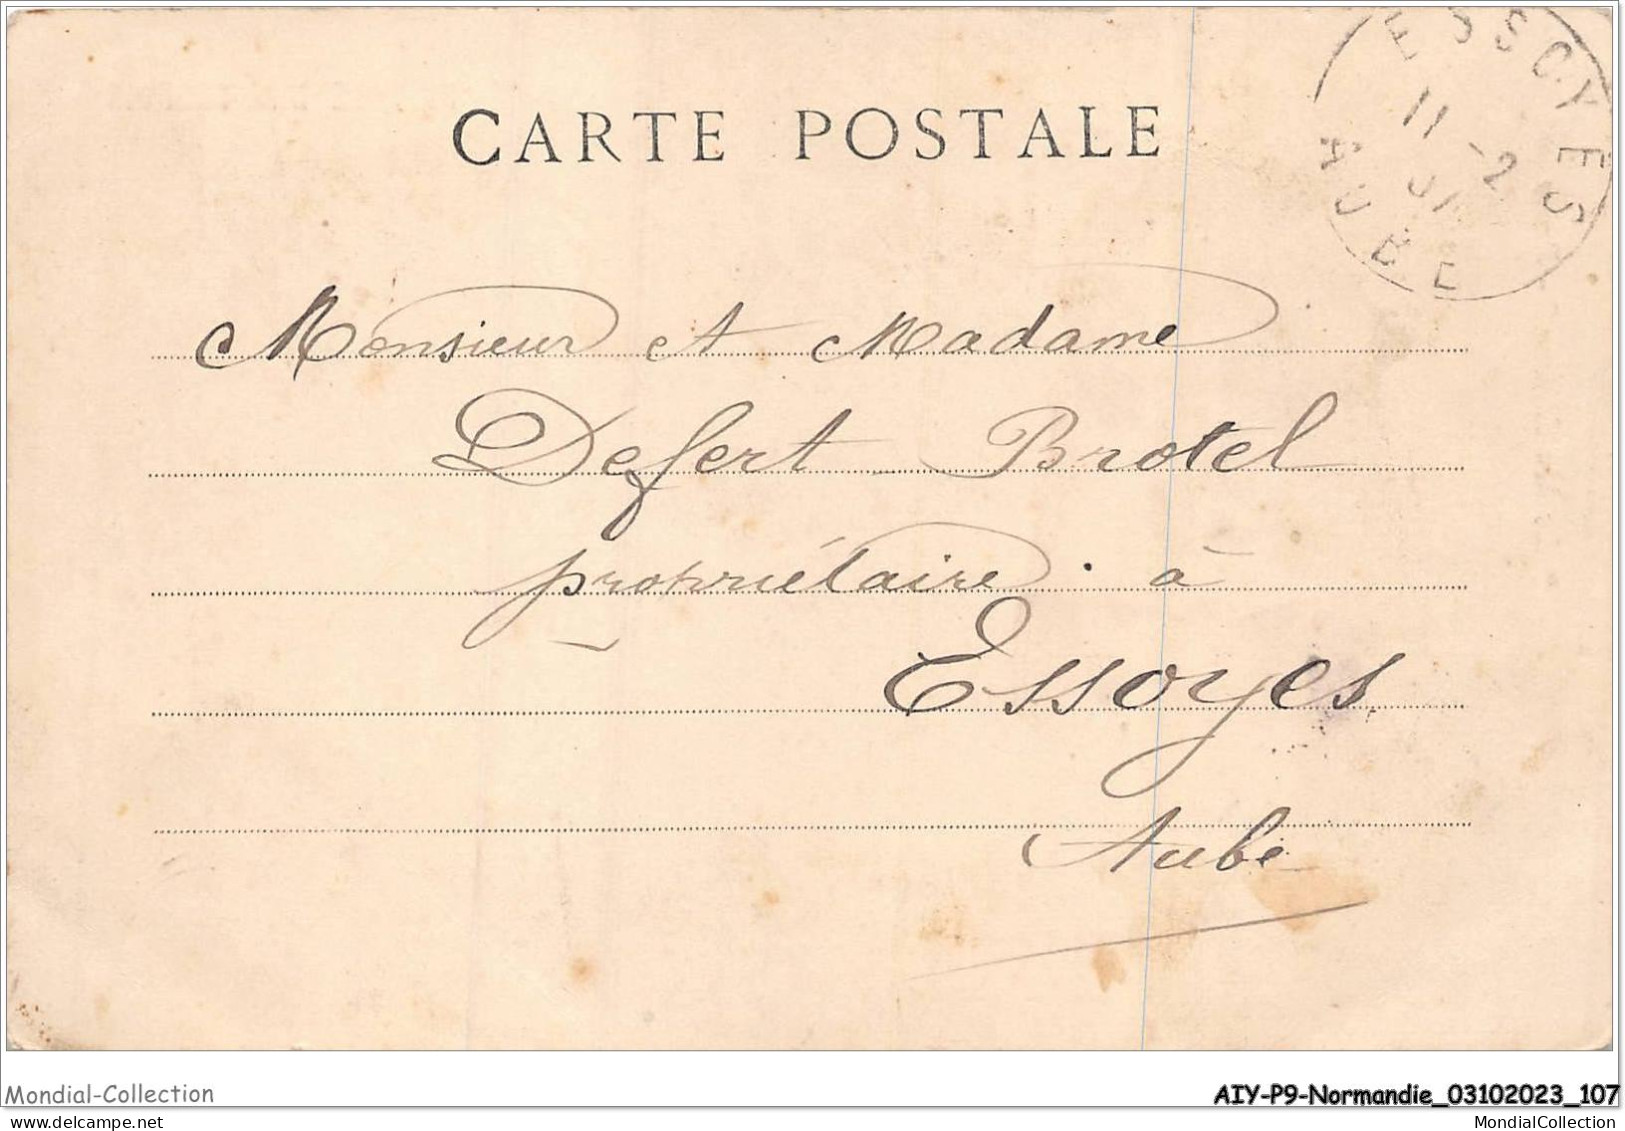 ESSOYES
11 -2
AUBE
CARTE POSTALE
Monsieur et Madame
Defert Brotel
propriétaire . à
Essoyes
Aube
Mondial-Collection
AIY-P9-Normandie_03102023_107
MondialCollection